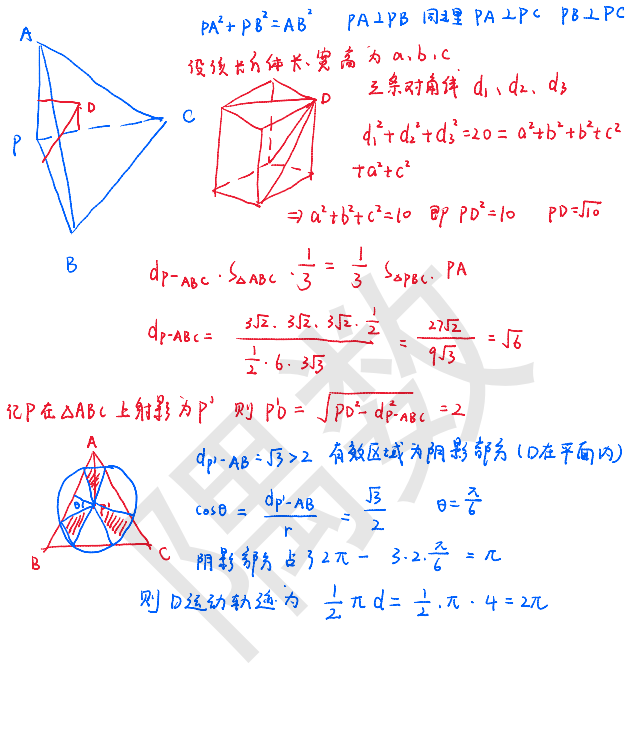 PA²+PB²=AB² PA⊥PB 同理 PA⊥PC PB⊥PC
设该长方体长、宽高为 a、b、c
三条对角线 d₁、d₂、d₃
d₁²+d₂²+d₃²=20= a²+b²+b²+c²
+a²+c²
⇒ a²+b²+c²=10 即 PD²=10 PD=√10
A
P
D
C
B
D
d_{P-ABC} · S_{△ABC} · 1/3 = 1/3 S_{△PBC} · PA
d_{P-ABC} = (3√2 · 3√2 · 3√2 · 1/2)/(1/2 · 6 · 3√3) = 27√2/9√3 = √6
记P在△ABC上射影为P' 则 P'D = √(PD²-d²_{P-ABC}) = 2
d_{P'-AB}=√3>2 有效区域为阴影部分(D在平面内)
cosθ = d_{P'-AB}/r = √3/2 θ=π/6
阴影部分占了2π - 3·2·π/6 = π
则D运动轨迹为 1/2 πd = 1/2 · π · 4 = 2π
A
θ
P'
B
C
隅数